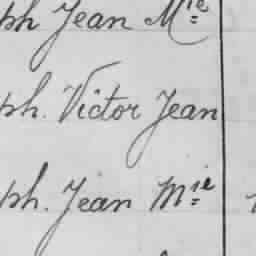 ph Jean Mie
ph. Victor Jean
ph. Jean Mie